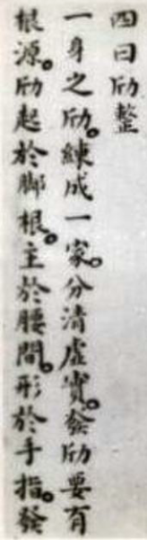 四曰劤整
一身之劤。練成一家。分清虛實。發劤要有
根源。劤起於脚根。主於腰間。形於手指。發